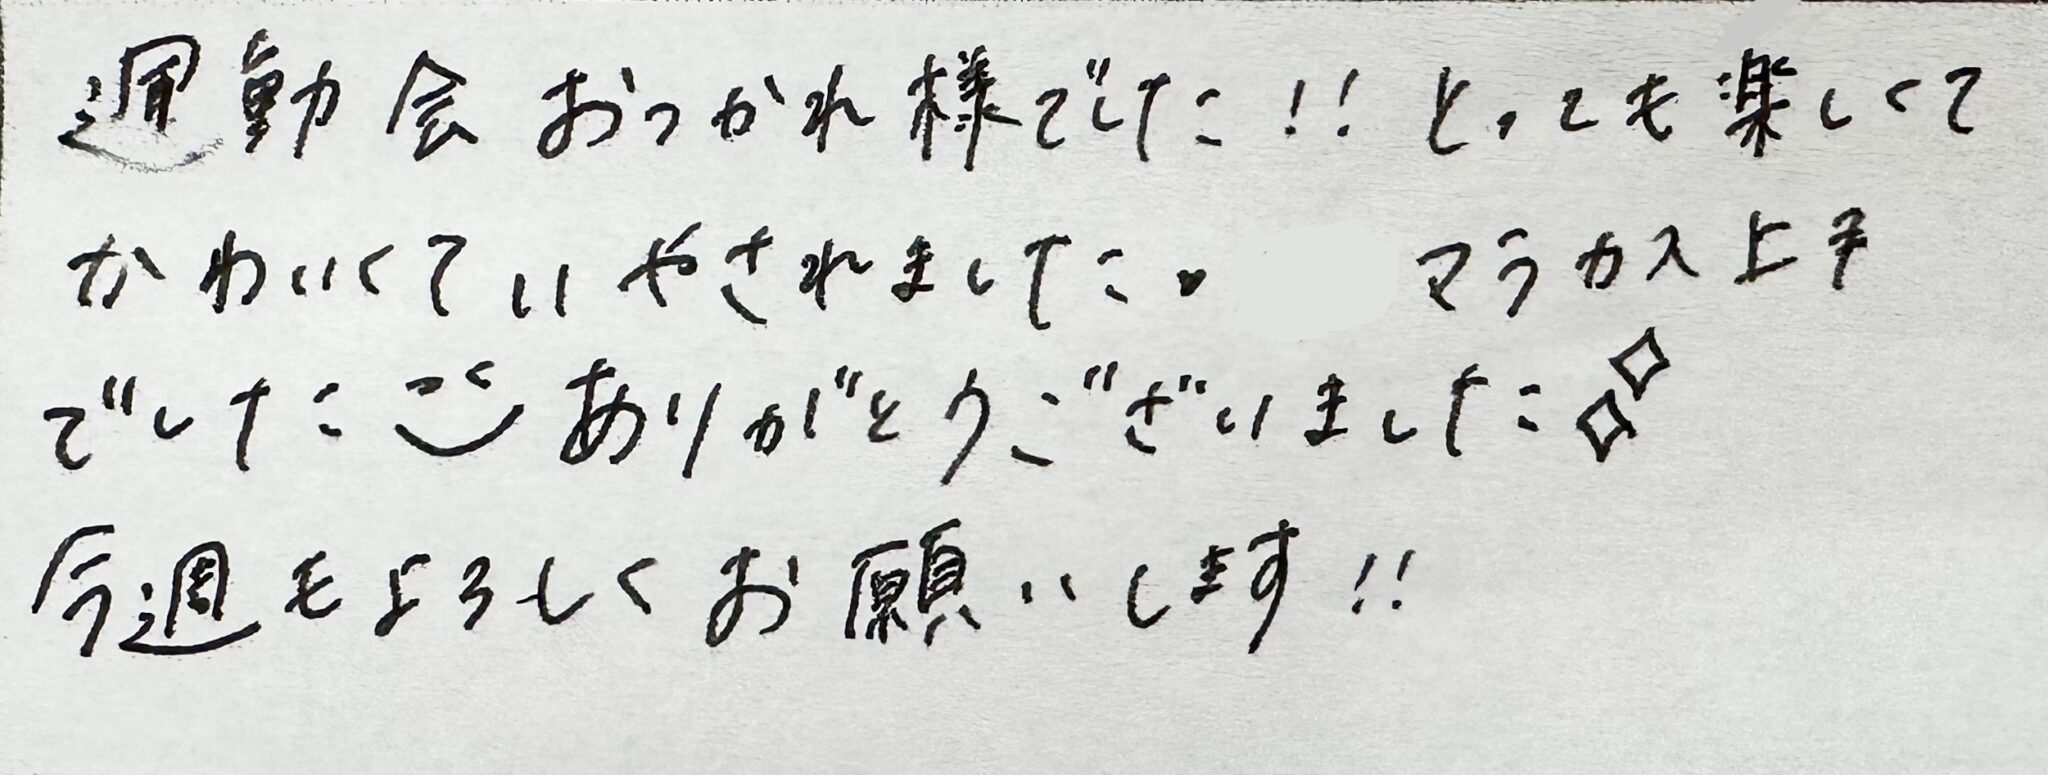 運動会おつかれ様でした!! とっても楽しくて
かわいくていやされました♥ マラカス上手
でした ありがとうございました
今週もよろしくお願いします!!